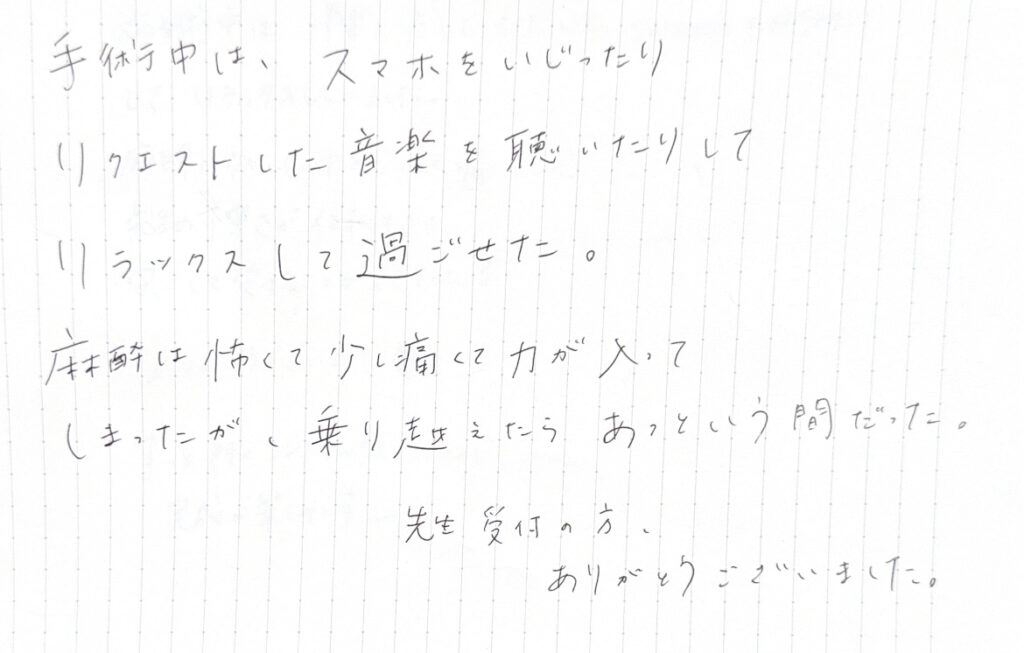 手術中は、スマホをいじったり
リクエストした音楽を聴いたりして
リラックスして過ごせた。
麻酔は怖くて少し痛くて力が入って
しまったが、乗り越えたら あっという間だった。
先生 受付の方、
ありがとうございました。